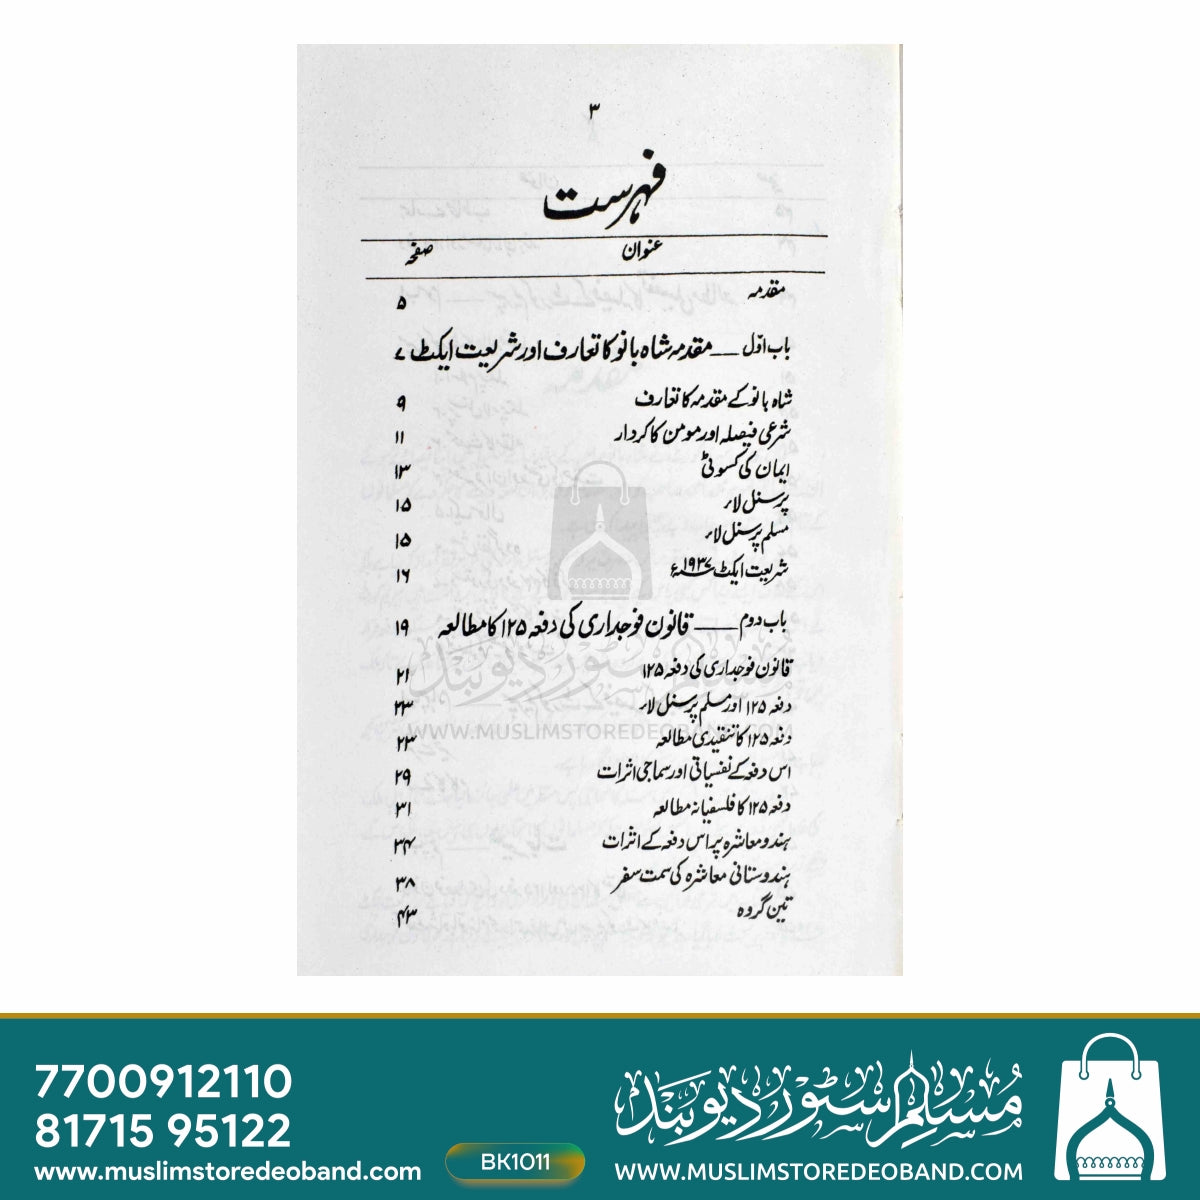 ۳
فہرست
عنوان صفحہ
مقدمہ ۵
باب اوّل — مقدمہ شاہ بانو کا تعارف اور شریعت ایکٹ ۷
شاہ بانو کے مقدمہ کا تعارف ۹
شرعی فیصلہ اور مومن کا کردار ۱۱
ایمان کی کسوٹی ۱۳
پرسنل لاء ۱۵
مسلم پرسنل لاء ۱۵
شریعت ایکٹ ۱۹۳۷ء ۱۶
باب دوم — قانون فوجداری کی دفعہ ۱۲۵ کا مطالعہ ۱۹
قانون فوجداری کی دفعہ ۱۲۵ ۲۱
دفعہ ۱۲۵ اور مسلم پرسنل لاء ۲۳
دفعہ ۱۲۵ کا تنقیدی مطالعہ ۲۳
اس دفعہ کے نفسیاتی اور سماجی اثرات ۲۹
دفعہ ۱۲۵ کا فلسفیانہ مطالعہ ۳۱
ہندو معاشرہ پر اس دفعہ کے اثرات ۳۴
ہندوستانی معاشرہ کی سمت سفر ۳۸
تین گروہ ۴۳
مسلم سٹور دیوبند
WWW.MUSLIMSTOREDEOBAND.COM
7700912110
81715 95122
www.muslimstoredeoband.com
BK1011
مسلم سٹور دیوبند
WWW.MUSLIMSTOREDEOBAND.COM